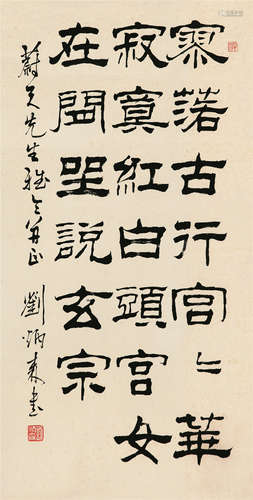 寥落古行宮〻華
寂寞紅白頭宮女
在閒坐說玄宗
先生雅
正
劉炳森書